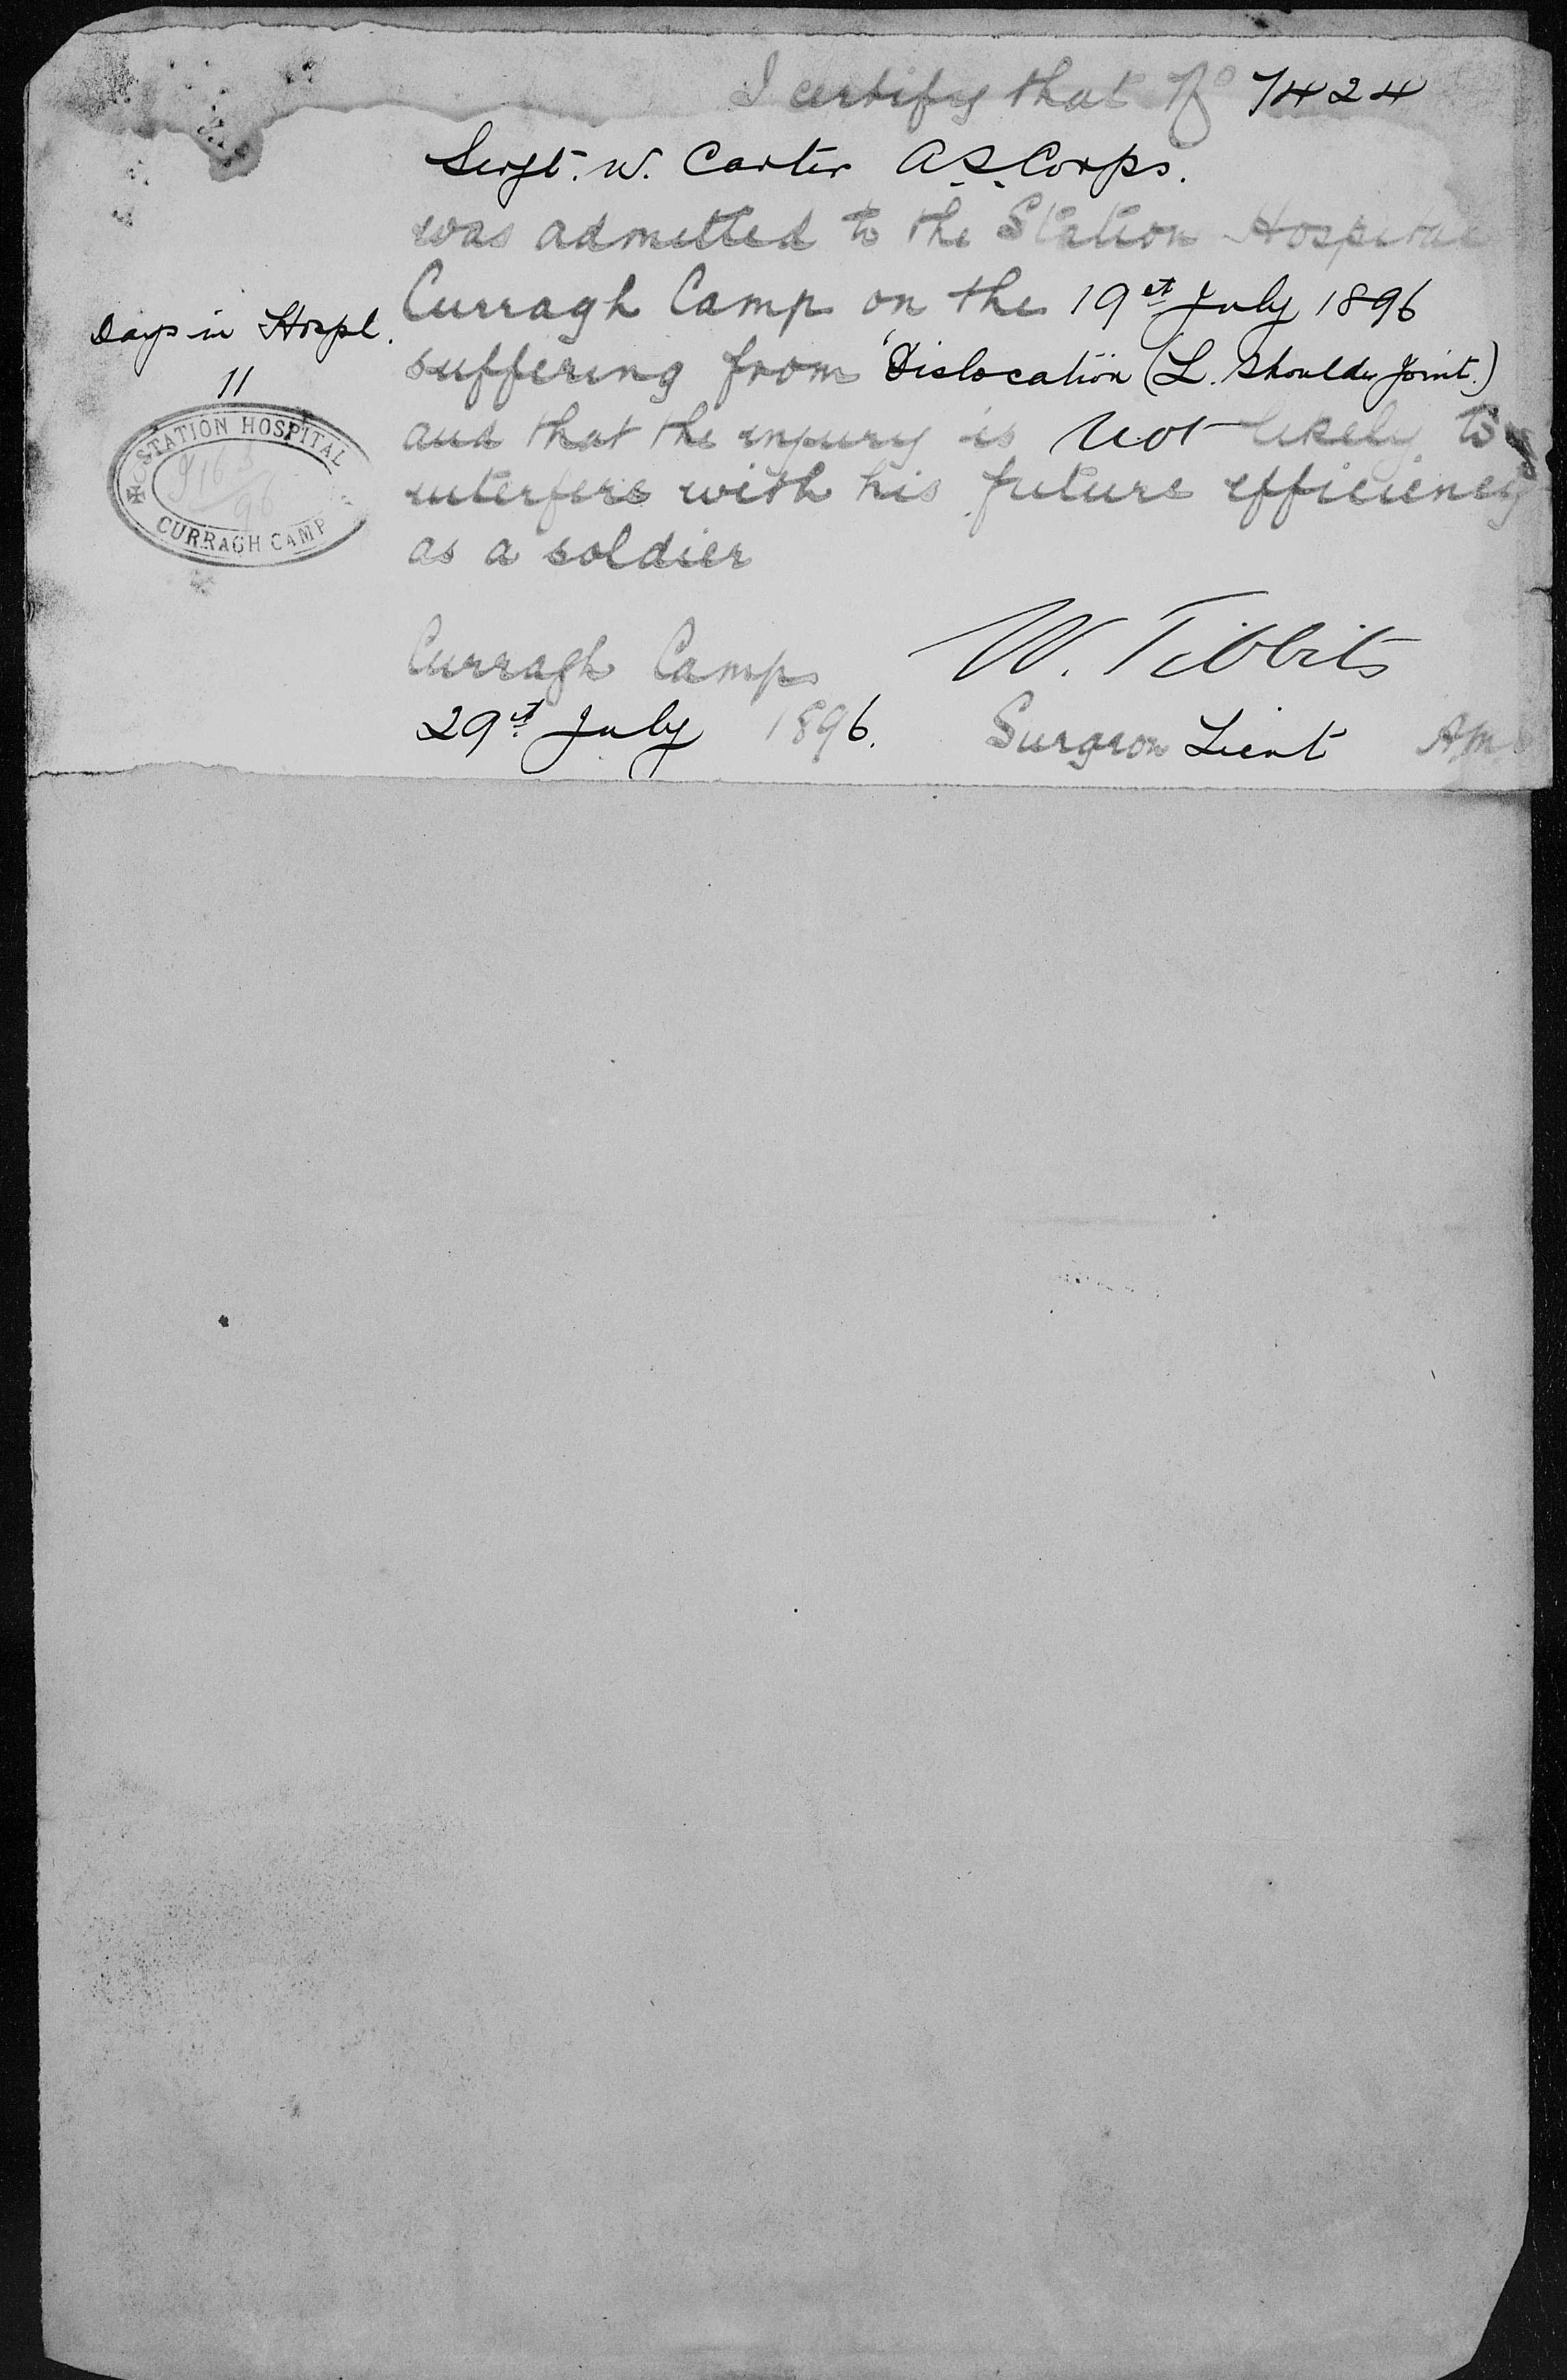 I certify that No 7424
Sergt. W. Carter A.S. Corps.
was admitted to the Station Hospital
Curragh Camp on the 19th July 1896
suffering from "Dislocation (L. Shoulder Joint.)
and that the injury is not likely to
interfere with his future efficiency
as a soldier
Curragh Camp
29th July 1896.
W. Tibbits
Surgeon Lieut AMS
Days in Hospl.
11
STATION HOSPITAL
CURRAGH CAMP